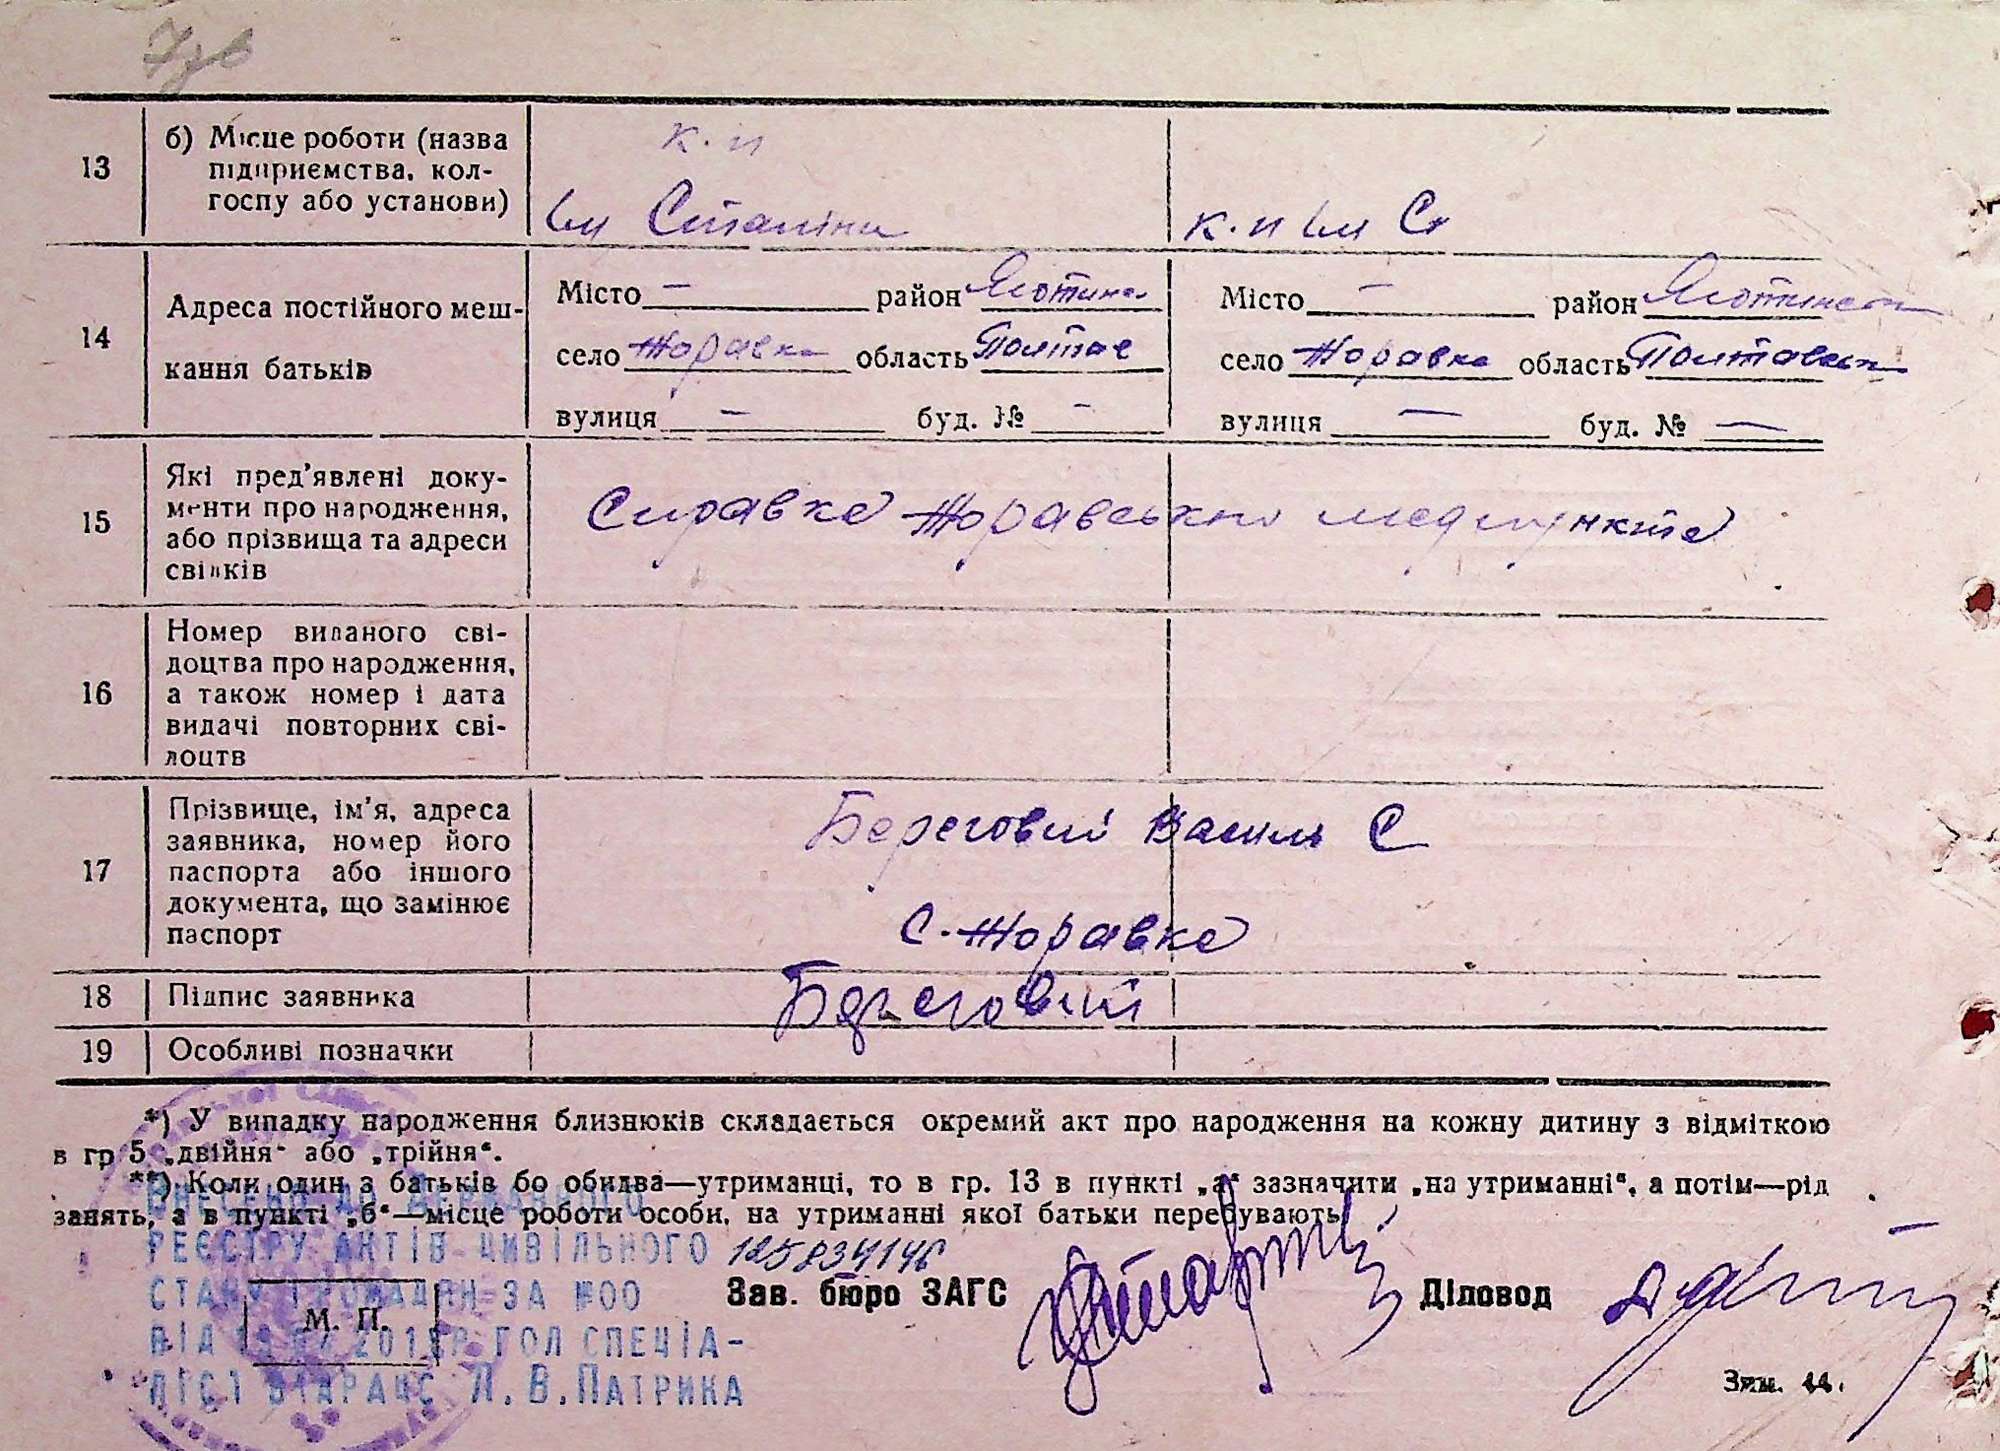 13
б) Місце роботи (назва
підприємства, кол-
госпу або установи)
к. п
ім Сталіна
к. п ім Ст
14
Адреса постійного меш-
кання батьків
Місто — район Яготинс
село Жоравка область Полтав
вулиця — буд. № —
Місто — район Яготинськ
село Жоравка область Полтавськ
вулиця — буд. № —
15
Які пред’явлені доку-
менти про народження,
або прізвища та адреси
свідків
Справка Жоравського медпункта
16
Номер виданого сві-
доцтва про народження,
а також номер і дата
видачі повторних сві-
доцтв
17
Прізвище, ім’я, адреса
заявника, номер його
паспорта або іншого
документа, що замінює
паспорт
Береговий Василь С
С. Жоравка
18
Підпис заявника
Береговий
19
Особливі позначки
*) У випадку народження близнюків складається окремий акт про народження на кожну дитину з відміткою
в гр 5 „двійня“ або „трійня“.
**) Коли один з батьків бо обидва—утриманці, то в гр. 13 в пункті „а“ зазначити „на утриманні“, а потім—рід
занять, а в пункті „б“—місце роботи особи, на утриманні якої батьки перебувають
ВНЕСЕНО ДО ДЕРЖАВНОГО
РЕЄСТРУ АКТІВ ЦИВІЛЬНОГО 125834146
СТАНУ ГРОМАДЯН ЗА №00
М. П.
Зав. бюро ЗАГС
Діловод
ГОЛ СПЕЦІА-
ЛІСТ ВДРАЦС Л. В. ПАТРИКА
Зам. 44.